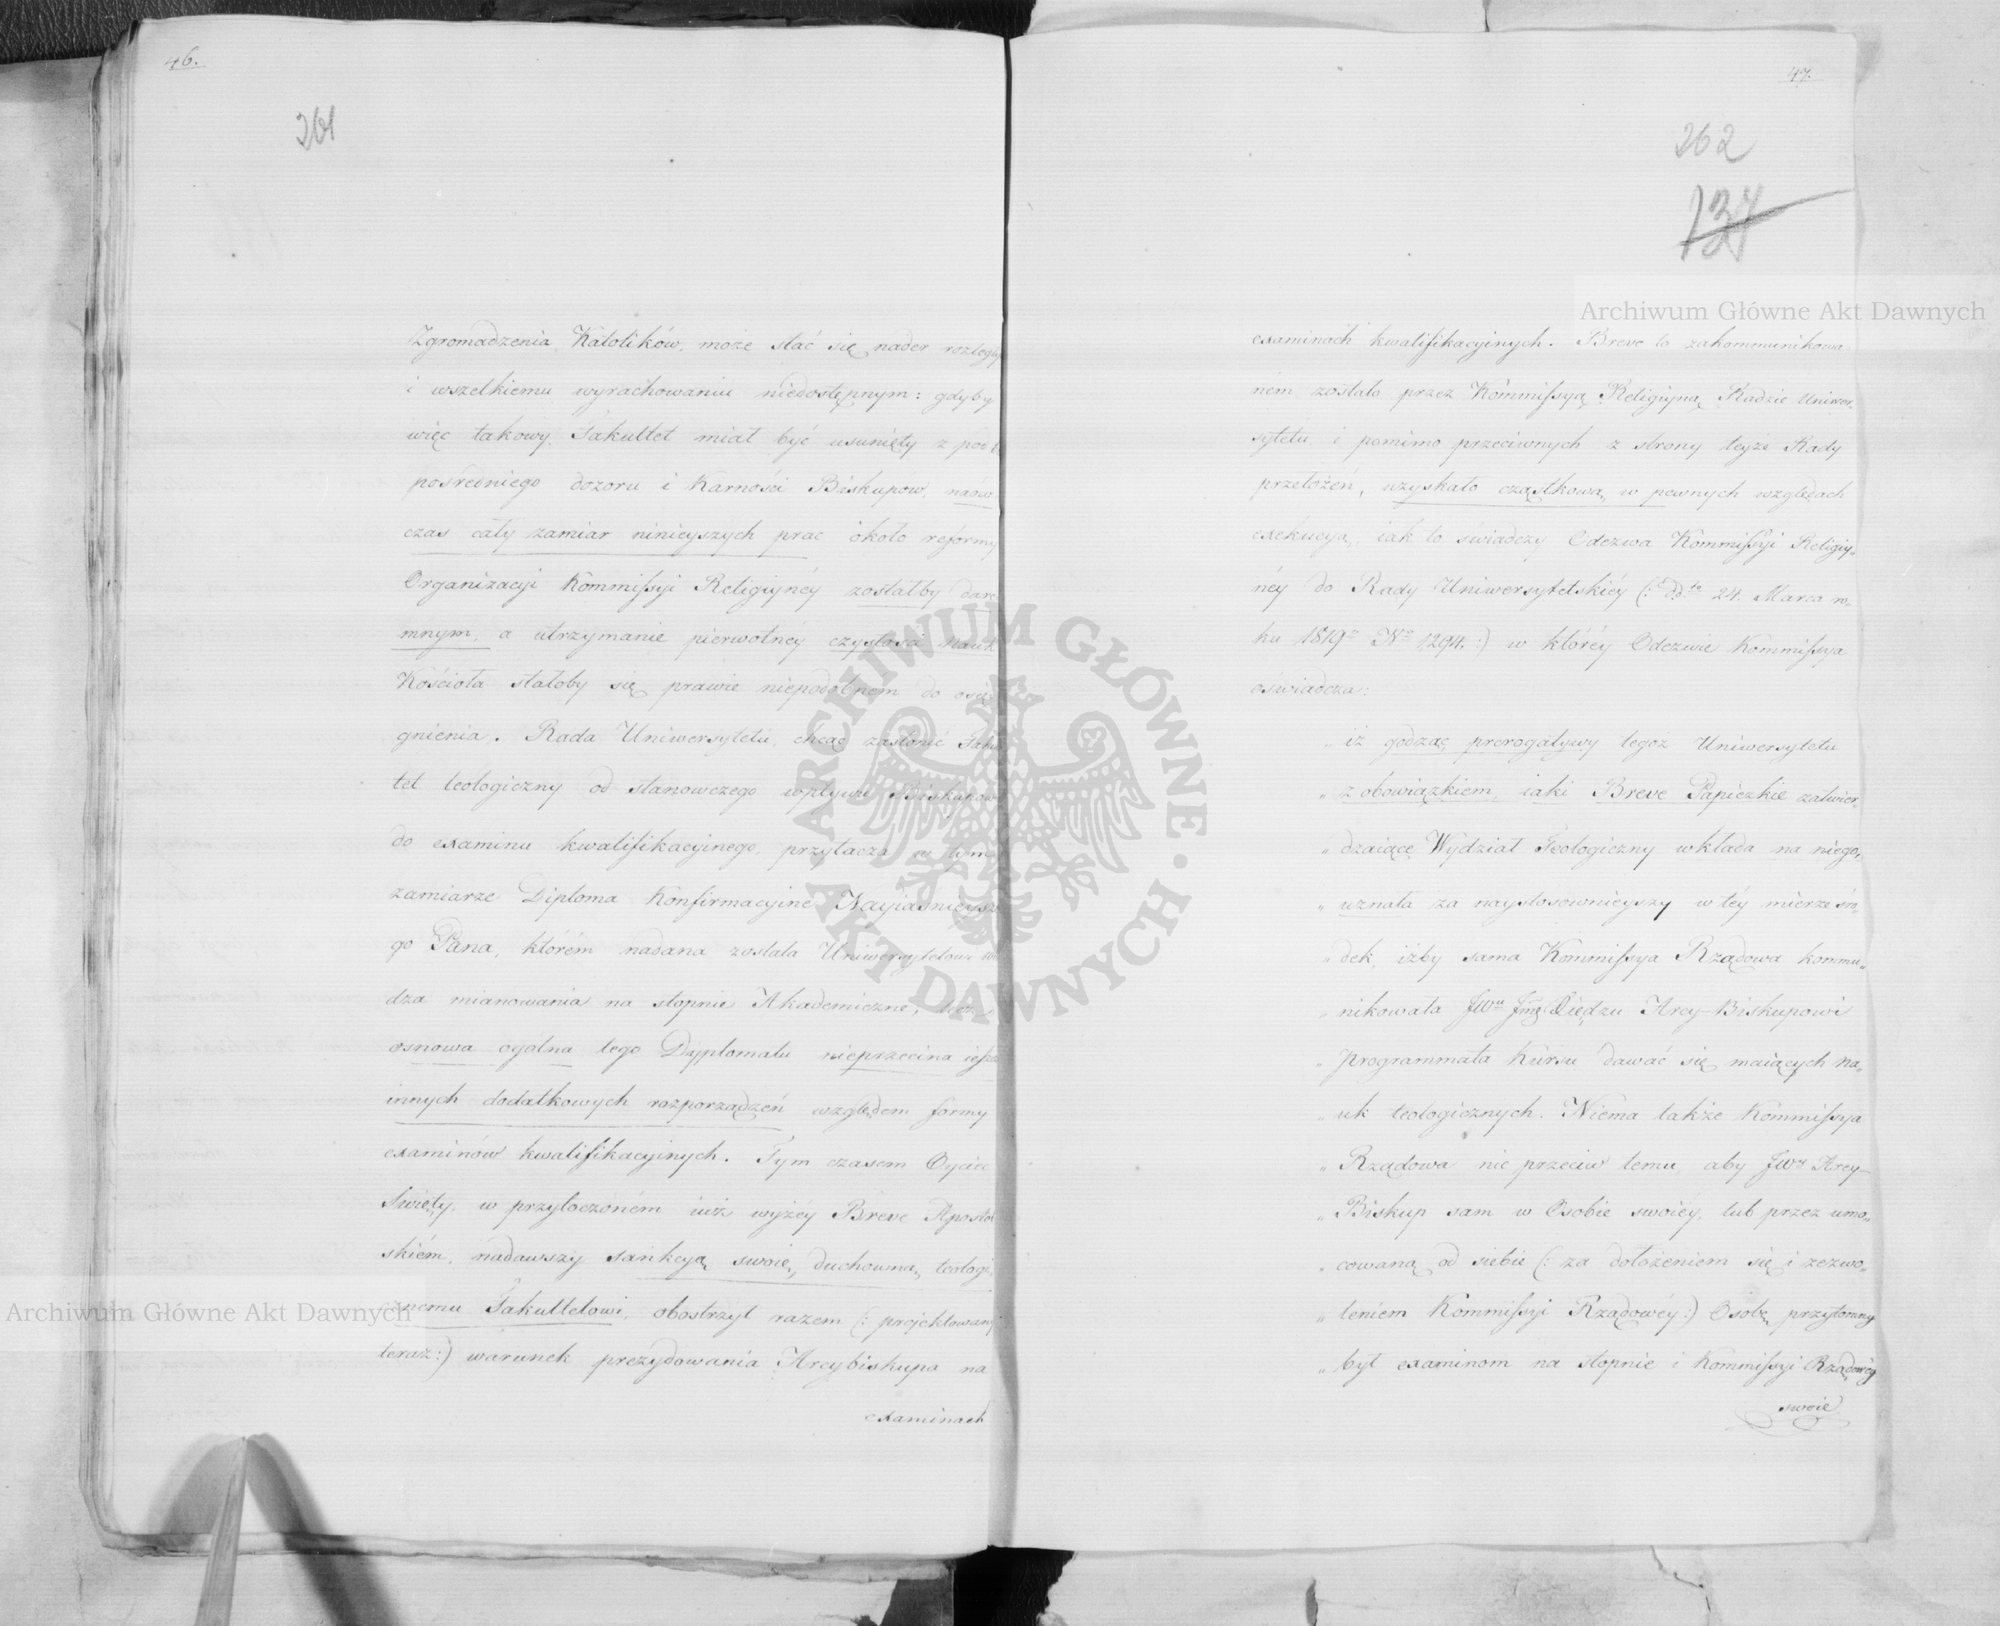 46.
261
Zgromadzenia Katolików, może stać się nader rozległy
i wszelkiemu wyrachowaniu niedostępnym: gdyby
więc takowy Fakultet miał być usunięty z pod
pośredniego dozoru i Karności Biskupów, naów
czas cały zamiar ninieyszych prac około reformy
Organizacyi Kommissyi Religiynéy zostałby dare
mnym, a utrzymanie pierwotney czystości nauk
Kościoła stałoby się prawie niepodobnem do osią
gnienia. Rada Uniwersytetu, chcąc zasłonić Fakul
tet teologiczny od stanowczego wpływu Biskupów
do examinu kwalifikacyinego, przytacza w tym
zamiarze Diploma Konfirmacyine Nayiaśnieysze
go Pana, którém nadana została Uniwersytetowi wła
dza mianowania na stopnie Akademiczne, lecz
osnowa ogólna tego Dyplomatu nieprzecina ieszcze
innych dodatkowych rozporządzeń względem formy
examinów kwalifikacyinych. Tym czasem Oyciec
Święty, w przytoczoném iuż wyżéy Breve Aposto
skiém, nadawszy sankcyą swoię, duchowną, teologi
cznemu Fakultetowi, obostrzył razem (: projektowany
teraz:) warunek prezydowania Arcybiskupa na
examinach
47.
262
137
examinach kwalifikacyinych. Breve to zakommunikowa
ném zostało przez Kommissyą Religiyną Radzie Uniwer„
sytetu i pomimo przeciwnych z strony teyże Rady
przełożeń, uzyskało cząstkową, w pewnych względach
exekucyą, iak to świadczy Odezwa Kommissyi Religiy„
néy do Rady Uniwersytetskiéy (: dd<sup>to</sup> 24. Marca ro„
ku 1819<sup>o</sup> N<sup>o</sup> 1,294. :) w któréy Odezwie Kommissya
oświadcza:
„ iż godząc prerogatywy tegoż Uniwersytetu
„ z obowiązkiem, iaki Breve Papiezkie zatwier„
„ dzaiące Wydział Teologiczny wkłada na niego,
„ uznała za naystosownieyszy w téy mierze śro„
„ dek, iżby sama Kommissya Rządowa kommu„
„ nikowała JW<sup>u</sup> Jmę Xiędzu Arcy-Biskupowi
„ programmata Kursu dawać się maiących na„
„ uk teologicznych. Niéma także Kommissya
„ Rządowa nic przeciw temu, aby JW<sup>y</sup> Arcy-
„ Biskup sam w Osobie swoiéy, lub przez umo„
„ cowaną od siebie (: za dołożeniem się i zezwo„
„ leniem Kommissyi Rządowéy:) Osobę, przytomny
„ był examinom na stopnie i Kommissyi Rządowéy
swoie
Archiwum Główne Akt Dawnych
Archiwum Główne Akt Dawnych
ARCHIWUM GŁÓWNE · AKT DAWNYCH ·